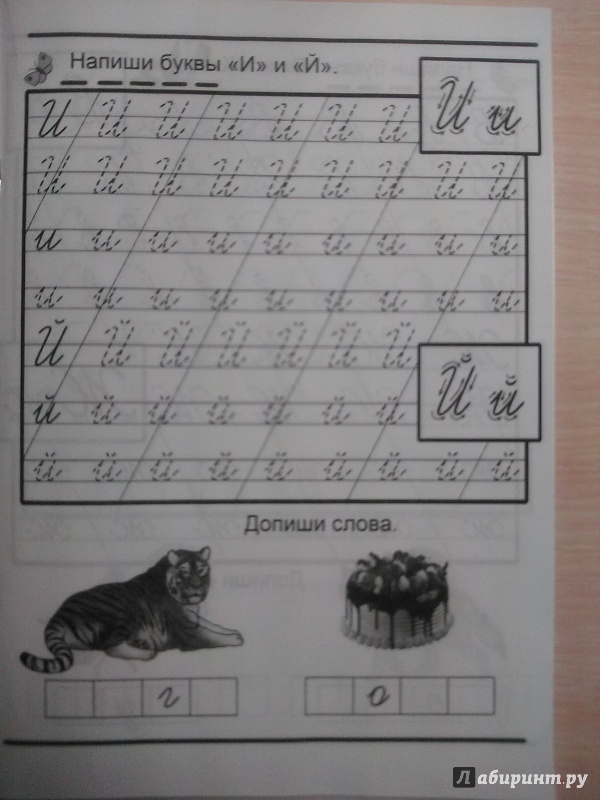 Напиши буквы «И» и «Й».
И И И И И И И
И и
И И И И И И И И И
и и и и и и и и и
и и и и и и и и и
Й Й Й Й Й Й Й
Й й
й й й й й й й
й й й й й й й й й
Допиши слова.
г
о
Лабиринт.ру